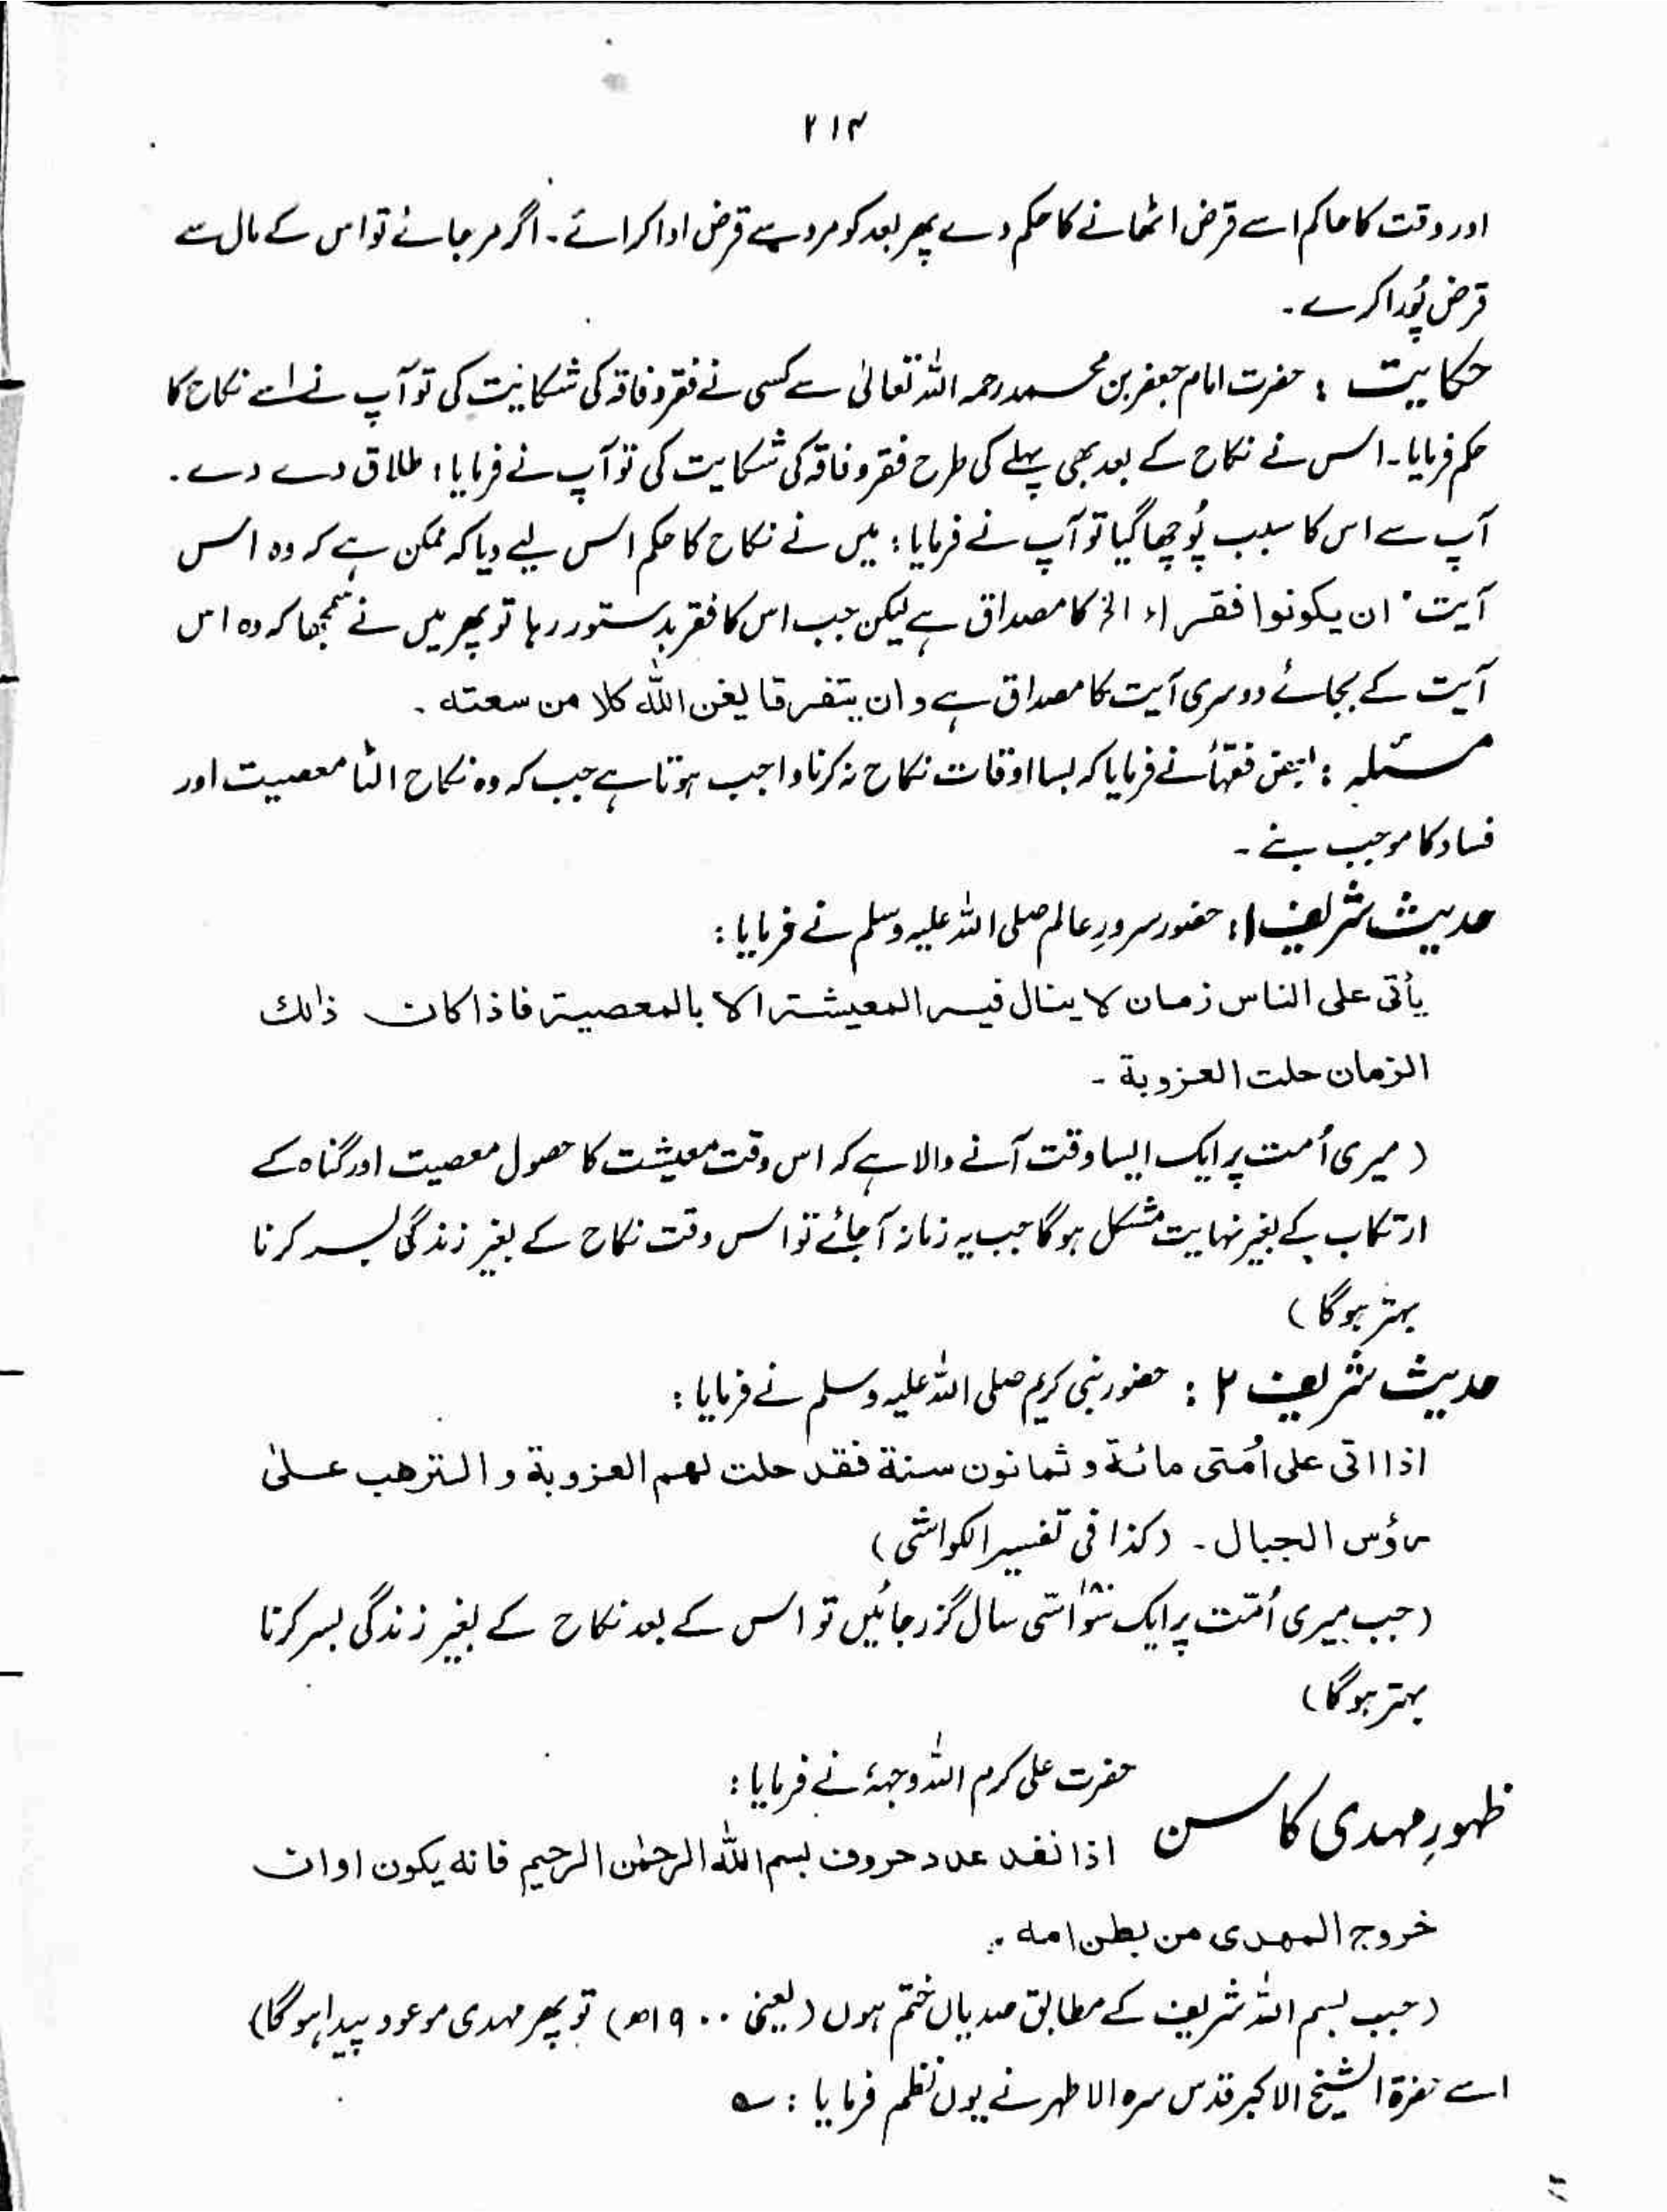 ۲۱۴
اور وقت کا حاکم اسے قرض اٹھانے کا حکم دے پھر بعد کو مرد سے قرض ادا کرائے۔ اگر مر جائے تو اس کے مال سے
قرض پُورا کرے۔
حکایت : حضرت امام جعفر بن محمد رحمہ اللہ تعالیٰ سے کسی نے فقر و فاقہ کی شکایت کی تو آپ نے اسے نکاح کا
حکم فرمایا۔ اس نے نکاح کے بعد بھی پہلے کی طرح فقر و فاقہ کی شکایت کی تو آپ نے فرمایا : طلاق دے دے۔
آپ سے اس کا سبب پُوچھا گیا تو آپ نے فرمایا : میں نے نکاح کا حکم اس لیے دیا کہ ممکن ہے کہ وہ اس
آیت ان یکونوا فقراء الخ کا مصداق ہے لیکن جب اس کا فقر بدستور رہا تو پھر میں نے سمجھا کہ وہ اس
آیت کے بجائے دوسری آیت کا مصداق ہے و ان یتفرقا یغن اللہ کلا من سعتہ ۔
مسئلہ : بعض فقہأ نے فرمایا کہ بسا اوقات نکاح نہ کرنا واجب ہوتا ہے جب کہ وہ نکاح الٹا معصیت اور
فساد کا موجب بنے ۔
حدیث شریف ۱ : حضور سرورِ عالم صلی اللہ علیہ وسلم نے فرمایا :
یأتی علی الناس زمان لا ینال فیہ المعیشۃ الا بالمعصیۃ فاذا کان ذٰلک
الزمان حلت العزوبة ۔
(میری اُمت پر ایک ایسا وقت آنے والا ہے کہ اس وقت معیشت کا حصول معصیت اور گناہ کے
ارتکاب کے بغیر نہایت مشکل ہو گا جب یہ زمانہ آ جائے تو اس وقت نکاح کے بغیر زندگی بسر کرنا
بہتر ہو گا)
حدیث شریف ۲ : حضور نبی کریم صلی اللہ علیہ وسلم نے فرمایا :
اذا اتی علی اُمتی مائة و ثمانون سنة فقد حلت لھم العزوبة و الترھب علیٰ
رؤس الجبال ۔ (کذا فی تفسیر الکواشی)
(جب میری اُمّت پر ایک سَو اسّی ۱۸۰ سال گزر جائیں تو اس کے بعد نکاح کے بغیر زندگی بسر کرنا
بہتر ہو گا)
ظہورِ مہدی کا سن
حضرت علی کرم اللہ وجہہٗ نے فرمایا :
اذا نفد عدد حروف بسم اللہ الرحمٰن الرحیم فانہ یکون اوان
خروج المھدی من بطن امہ ۔
(جب بسم اللہ شریف کے مطابق صدیاں ختم ہوں (یعنی ۱۹۰۰ھ) تو پھر مہدی موعود پیدا ہو گا)
اسے حضرۃ الشیخ الاکبر قدس سرہ الاطہر نے یوں نظم فرمایا : ؎